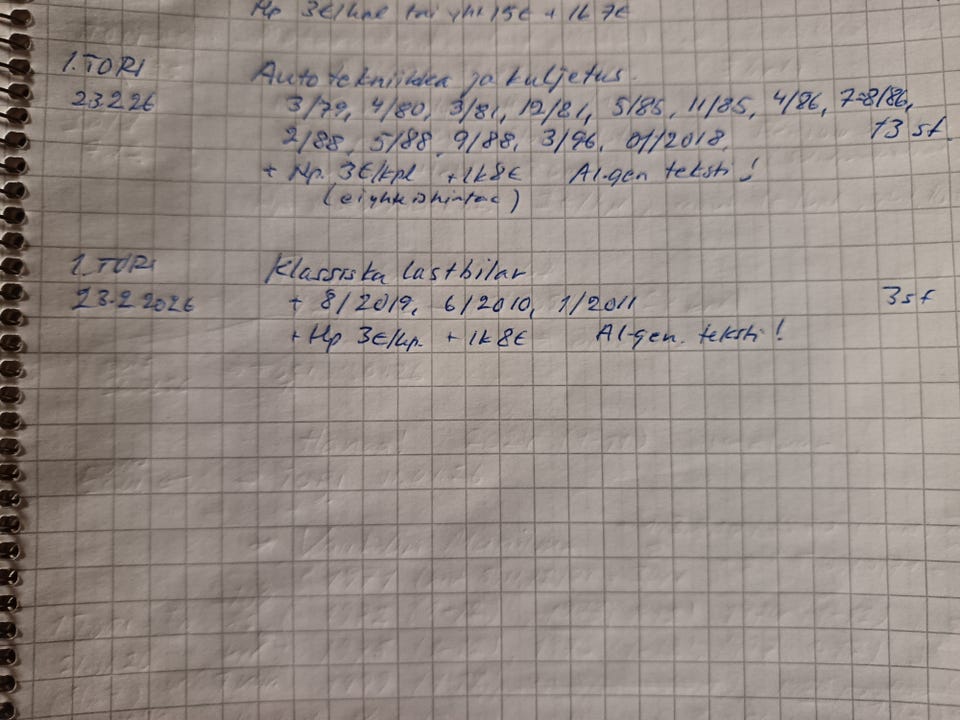 Hp 3€/kpl tai yht 15€ + lk 7€
1. TORI Autotekniikka ja kuljetus.
23.2.26 3/79, 4/80, 3/81, 12/81, 5/85, 11/85, 4/86, 7-8/86,
2/88, 5/88, 9/88, 3/96, 01/2018, 13 st.
+ Hp. 3€/kpl + lk 8€ AI-gen teksti!
(ei yhteishintaa)
1. TORI Klassiska lastbilar
23.2.2026 + 8/2019, 6/2010, 1/2011 3 st
+ Hp 3€/kp. + lk 8€ AI-gen. teksti!